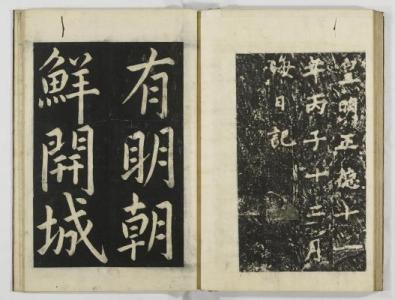 皇明正德十一
年丙子十二月
晦日記
有明朝
鮮開城